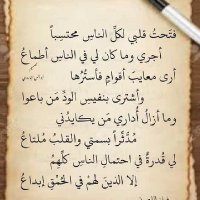 فتَحتُ قلبي لكلِّ الناسِ محتسِباً
أجري وما كان لي في الناسِ أطماعُ
أرى معايبَ أقوامٍ فأستُرُها
وأشتري بنفيسِ الودِّ مَن باعوا
وما أزالُ أُداري مَن يكايدُني
مُدَّثِّراً بسمتي والقلبُ مُلتاعُ
لي قُدرةٌ في احتمالِ الناسِ كلِّهِمُ
إلا الذينَ لهُمْ في الحُمْقِ إبداعُ